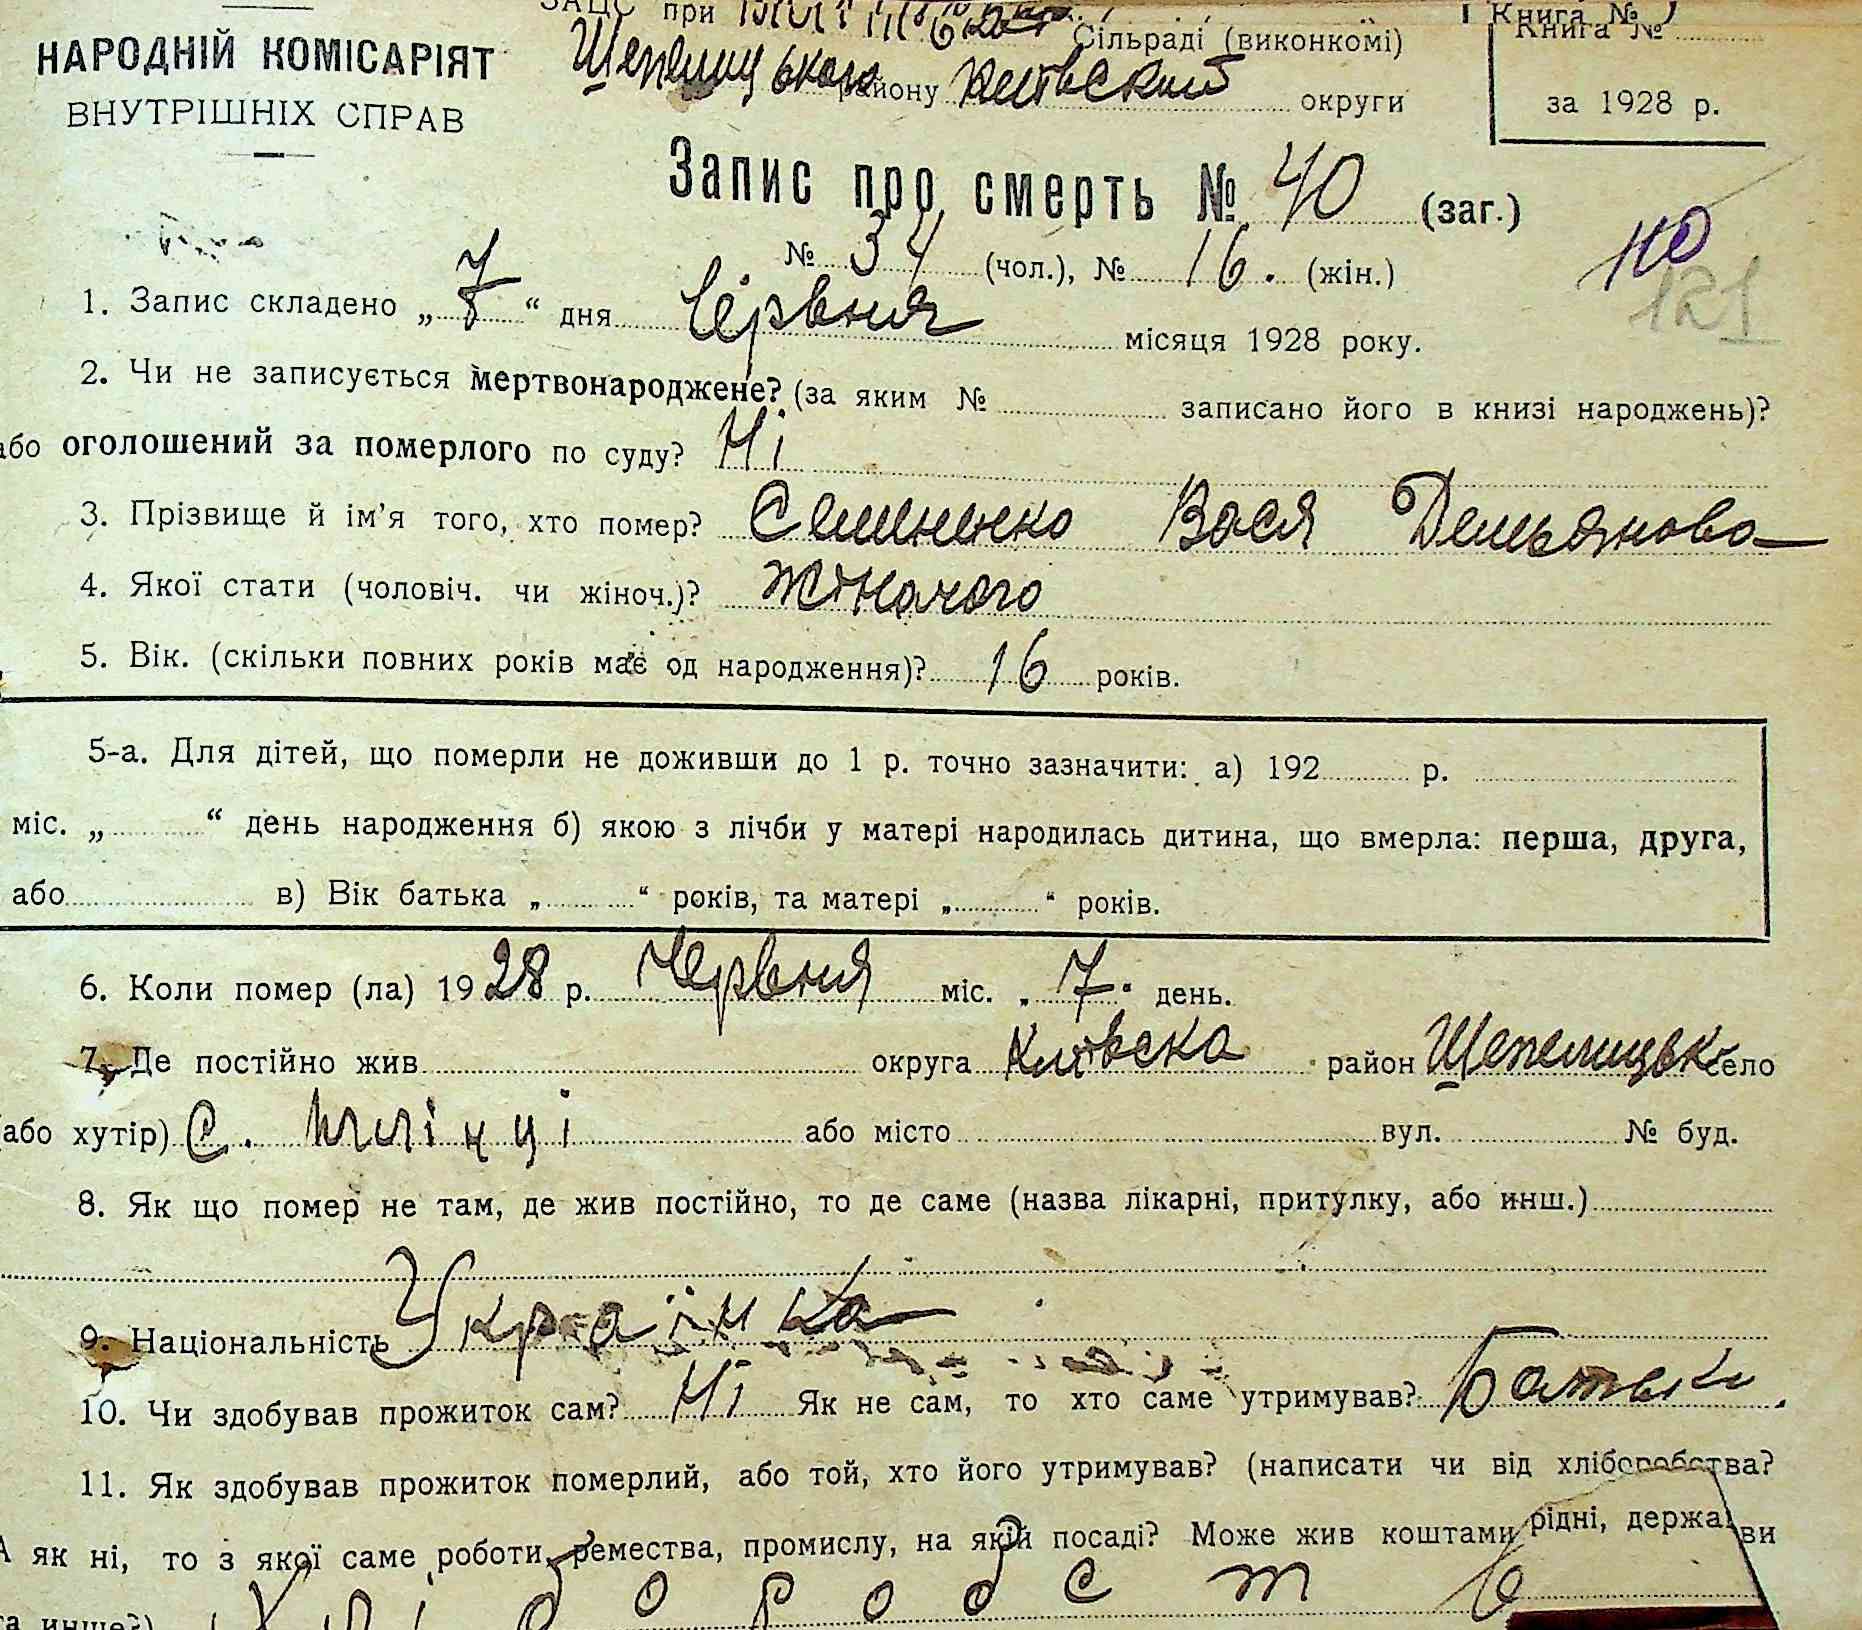 ЗАЦС при
НАРОДНІЙ КОМІСАРІЯТ
ВНУТРІШНІХ СПРАВ
Сільраді (виконкомі)
Шепелицького району Київський округи
Книга №
за 1928 р.
Запис про смерть № 40 (заг.)
№ 34 (чол.), № 16. (жін.)
110
121
1. Запис складено „ 7 “ дня Червня місяця 1928 року.
2. Чи не записується мертвонароджене? (за яким № записано його в книзі народжень)?
або оголошений за померлого по суду? Ні
3. Прізвище й ім’я того, хто помер? Семененко Вася Демьянова
4. Якої стати (чоловіч. чи жіноч.)? Жіночого
5. Вік. (скільки повних років має од народження)? 16 років.
5-а. Для дітей, що померли не доживши до 1 р. точно зазначити: а) 192 р.
міс. „ “ день народження б) якою з лічби у матері народилась дитина, що вмерла: перша, друга,
або в) Вік батька „ “ років, та матері „ “ років.
6. Коли помер (ла) 1928 р. Червня міс. „ 7 “ день.
7. Де постійно жив округа Київська район Шепелицьк село
(або хутір) с. Іллінці або місто вул. № буд.
8. Як що помер не там, де жив постійно, то де саме (назва лікарні, притулку, або инш.)
9. Національність Українка
10. Чи здобував прожиток сам? Ні Як не сам, то хто саме утримував? Батьки
11. Як здобував прожиток померлий, або той, хто його утримував? (написати чи від хліборобства?
А як ні, то з якої саме роботи, ремества, промислу, на якій посаді? Може жив коштами рідні, держави
та инше?) Хліборобств